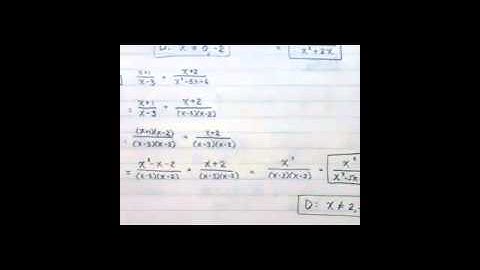 D: x ≠ 0, -2 = x² + 2x
x+1/x-3 + x+2/x²-5x+6
= x+1/x-3 + x+2/(x-3)(x-2)
= (x+1)(x-2)/(x-3)(x-2) + x+2/(x-3)(x-2)
= x²-x-2/(x-3)(x-2) + x+2/(x-3)(x-2) = x²/(x-3)(x-2) = x²/x²-5x
D: x ≠ 2,